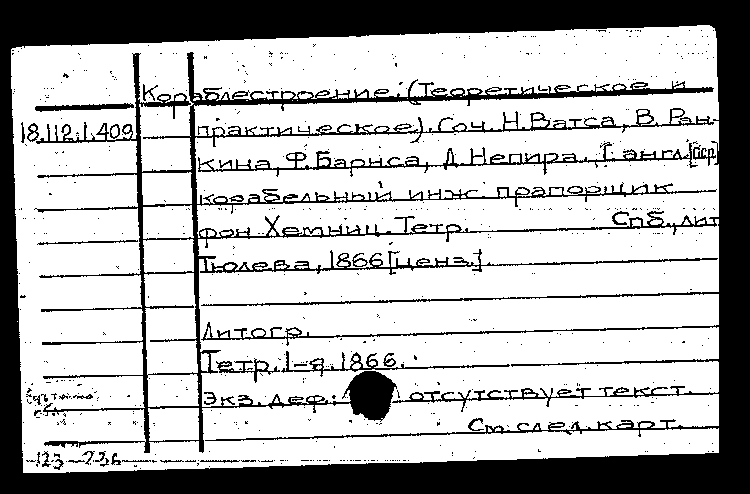 Кораблестроение: (Теоретическое и
18.112.1.409
практическое). Соч. Н. Ватса, В. Ран-
кина, Ф. Барнса, Д. Непира. Т. англ. [пер]
корабельный инж. прапорщик
фон Хемниц. Тетр. Спб., лит
Тюлева, 1866 [ценз.].
Литогр.
Тетр. 1-я. 1866.
Экз. деф.: отсутствует текст.
См. след. карт.
123-236